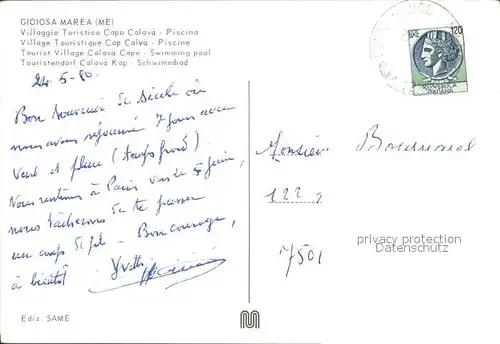 GIOIOSA MAREA (ME)
Villaggio Turistico Capo Calavà - Piscina
Village Touristique Cap Calva - Piscine
Tourist Village Calavà Cape - Swimming pool
Touristendorf Calavà Kap - Schwimmbad
24-5-80
Bon souvenir de Sicile où
nous avons séjourné 7 jours avec
Vent et pluie (temps froid).
Nous rentrons à Paris vers le 5 juin,
nous tâcherons de te passer
un coup de fil - Bon courage,
à bientôt Yvette
LIRE 120
REPUBBLICA
ITALIANA
Monsieur Bournarel
122
7501
privacy protection
Datenschutz
Ediz. SAME